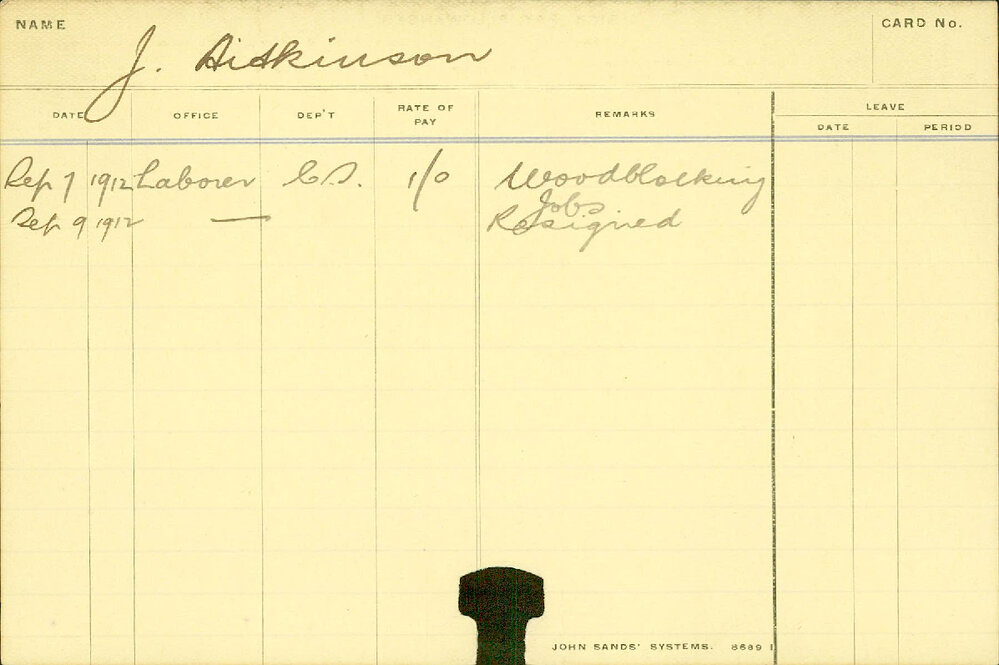 NAME J. Aitkinson CARD No.
DATE OFFICE DEP'T RATE OF PAY REMARKS LEAVE
DATE PERIOD
Sep 7 1912 Laborer C.S. 1/0 Woodblocking
Jobs
Sep 9 1912 — Resigned
JOHN SANDS' SYSTEMS. 8689